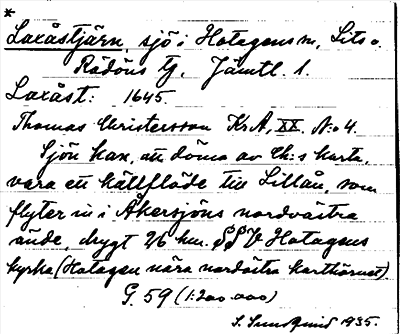 *
Laxåstjärn, sjö i Hotagens sn, Lits o.
Rödöns tg, Jämtl. l.
Laxåst: 1645.
Thomas Christersson KrA, XX. N:o 4.
Sjön kan, att döma av Ch:s karta,
vara ett källflöde till Lillån, som
flyter in i Åkersjöns nordvästra
ände, drygt 26 km. SSV Hotagens
kyrka (Hotagen nära nordöstra karthörnet)
G. 59 (1:200.000)
S. Sundquist 1935.